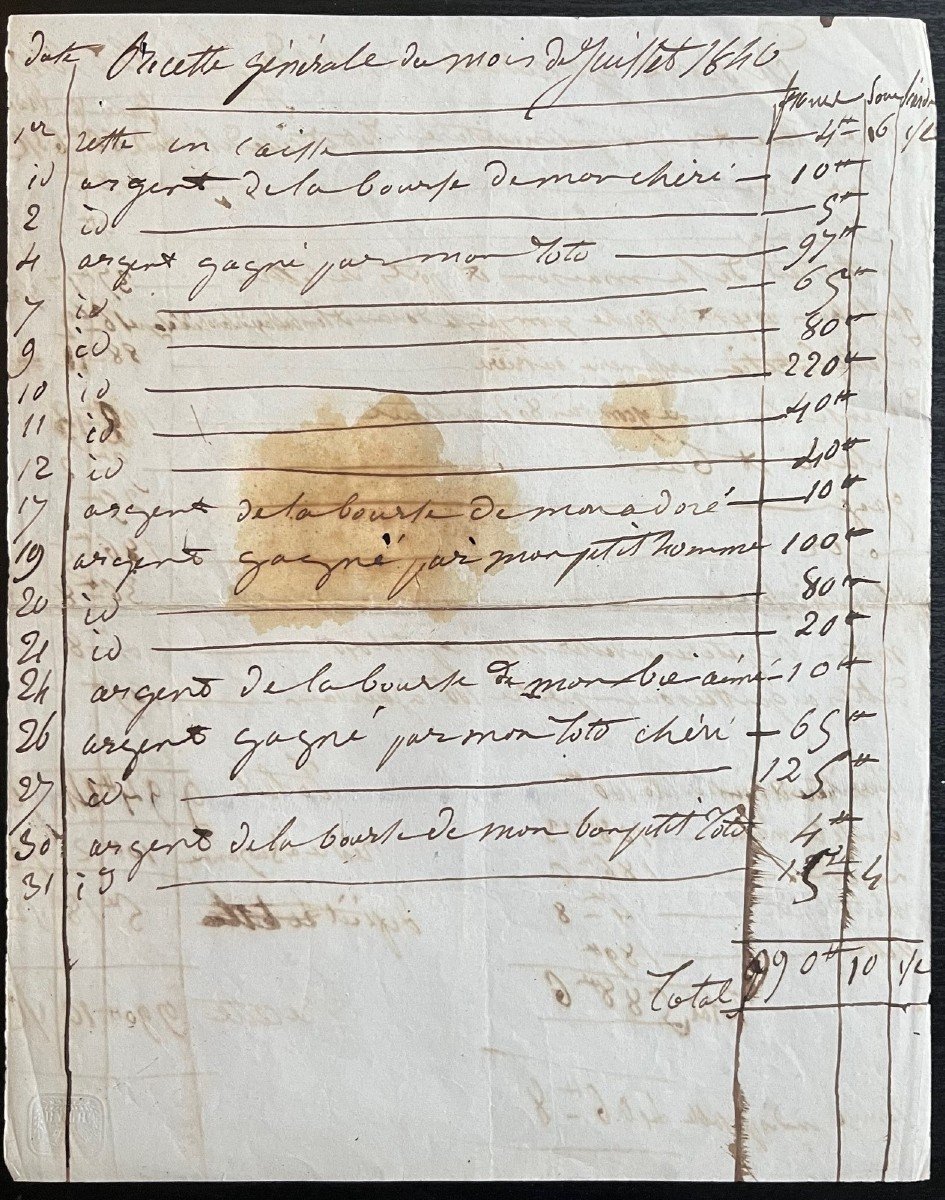 date Recette générale du mois de Juillet 1840
francs Sous liards
1er reste en caisse 4tt 16 1/2
id argent de la bourse de mon chéri 10tt
2 id 5tt
4 argent gagné par mon Toto 97tt
7 id 65tt
9 id 80tt
10 id 220tt
11 id 40tt
12 id 40tt
17 argent de la bourse de mon adoré 10tt
19 argent gagné par mon ptit homme 100tt
20 id 80tt
21 id 20tt
24 argent de la bourse de mon bieaimé 10tt
26 argent gagné par mon Toto chéri 65tt
27 id 125tt
30 argent de la bourse de mon bon ptit Toto 4tt
31 id 4
Total 990tt 10 1/2